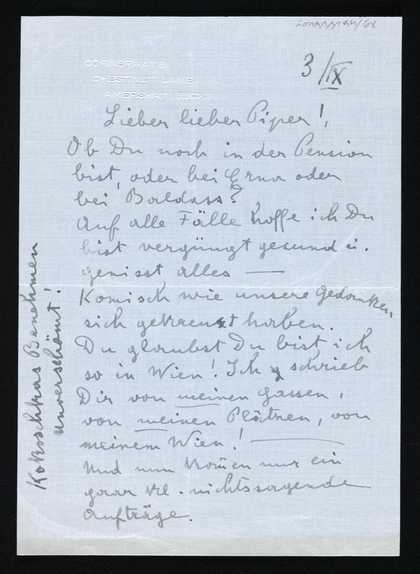 CORNERWAYS
CHESTNUT LANE
AMERSHAM BUCKS
3/IX
Lieber lieber Piper!,
Ob Du noch in der Pension
bist, oder bei Erna oder
bei Baldass?
Auf alle Fälle hoffe ich Du
bist vergnügt gesund u.
geniesst alles —
Komisch wie unsere Gedanken
sich gekreuzt haben.
Du glaubst Du bist ich
so in Wien! Ich schrieb
Dir von meinen Gassen,
von meinen Plätzen, von
meinem Wien! —
Und nun kommen nur ein
paar nichtssagende
Aufträge.
Kokoschkas Benehmen
unverschämt!